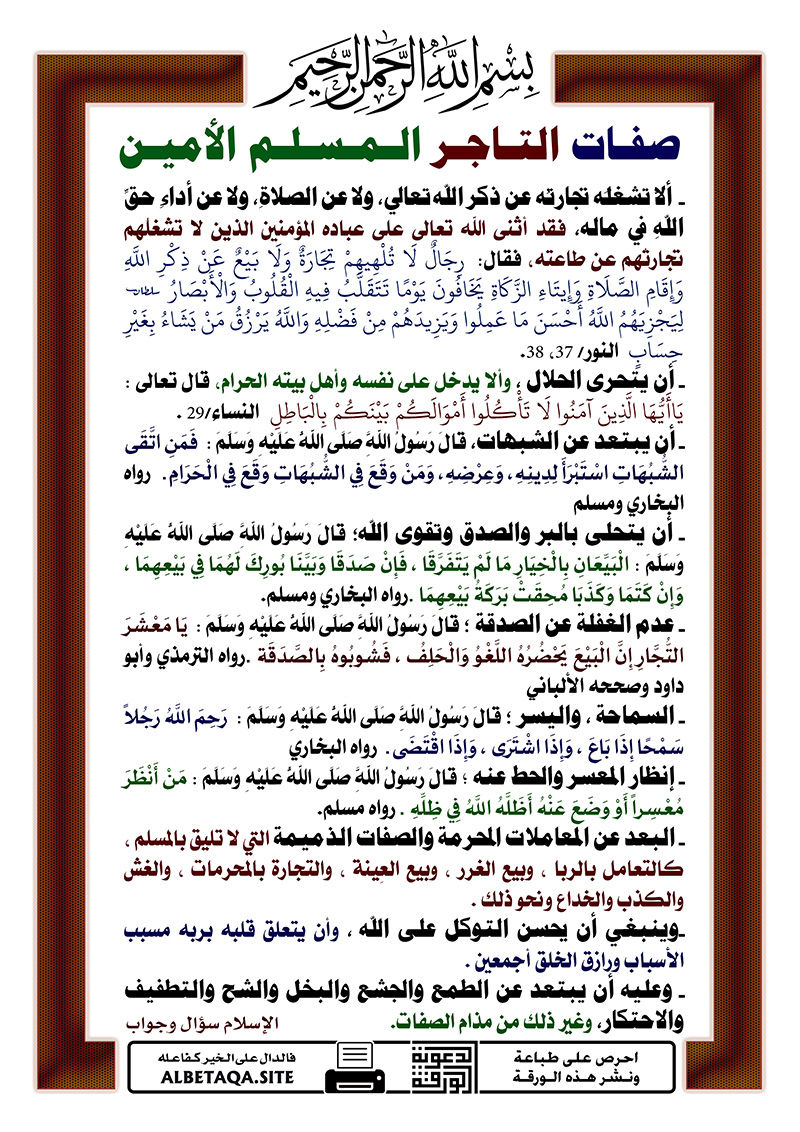 بِسْمِ اللَّهِ الرَّحْمَنِ الرَّحِيمِ
صفات التاجر المسلم الأمين
ـ ألا تشغله تجارته عن ذكر الله تعالي، ولا عن الصلاةِ، ولا عن أداءِ حقِّ
اللهِ في ماله، فقد أثنى الله تعالى على عباده المؤمنين الذين لا تشغلهم
تجارتهم عن طاعته، فقال: رِجَالٌ لَا تُلْهِيهِمْ تِجَارَةٌ وَلَا بَيْعٌ عَنْ ذِكْرِ اللَّهِ
وَإِقَامِ الصَّلَاةِ وَإِيتَاءِ الزَّكَاةِ يَخَافُونَ يَوْمًا تَتَقَلَّبُ فِيهِ الْقُلُوبُ وَالْأَبْصَارُ
لِيَجْزِيَهُمُ اللَّهُ أَحْسَنَ مَا عَمِلُوا وَيَزِيدَهُمْ مِنْ فَضْلِهِ وَاللَّهُ يَرْزُقُ مَنْ يَشَاءُ بِغَيْرِ
حِسَابٍ النور/ 37، 38.
ـ أن يتحرى الحلال ، وألا يدخل على نفسه وأهل بيته الحرام، قال تعالى :
يَاأَيُّهَا الَّذِينَ آمَنُوا لَا تَأْكُلُوا أَمْوَالَكُمْ بَيْنَكُمْ بِالْبَاطِلِ النساء/29 .
ـ أن يبتعد عن الشبهات، قَالَ رَسُولُ اللَّهِ صَلَّى اللهُ عَلَيْهِ وَسَلَّمَ : فَمَنِ اتَّقَى
الشُّبُهَاتِ اسْتَبْرَأَ لِدِينِهِ ، وَعِرْضِهِ ، وَمَنْ وَقَعَ فِي الشُّبُهَاتِ وَقَعَ فِي الْحَرَامِ. رواه
البخاري ومسلم
ـ أن يتحلى بالبر والصدق وتقوى الله؛ قَالَ رَسُولُ اللَّهِ صَلَّى اللهُ عَلَيْهِ
وَسَلَّمَ : الْبَيِّعَانِ بِالْخِيَارِ مَا لَمْ يَتَفَرَّقَا ، فَإِنْ صَدَقَا وَبَيَّنَا بُورِكَ لَهُمَا فِي بَيْعِهِمَا ،
وَإِنْ كَتَمَا وَكَذَبَا مُحِقَتْ بَرَكَةُ بَيْعِهِمَا .رواه البخاري ومسلم.
ـ عدم الغفلة عن الصدقة ؛ قَالَ رَسُولُ اللَّهِ صَلَّى اللهُ عَلَيْهِ وَسَلَّمَ : يَا مَعْشَرَ
التُّجَّارِ إِنَّ الْبَيْعَ يَحْضُرُهُ اللَّغْوُ وَالْحَلِفُ ، فَشُوبُوهُ بِالصَّدَقَةِ .رواه الترمذي وأبو
داود وصححه الألباني
ـ السماحة ، واليسر ؛ قَالَ رَسُولُ اللَّهِ صَلَّى اللهُ عَلَيْهِ وَسَلَّمَ : رَحِمَ اللَّهُ رَجُلاً
سَمْحًا إِذَا بَاعَ ، وَإِذَا اشْتَرَى ، وَإِذَا اقْتَضَى . رواه البخاري
ـ إنظار المعسر والحط عنه ؛ قَالَ رَسُولُ اللَّهِ صَلَّى اللهُ عَلَيْهِ وَسَلَّمَ : مَنْ أَنْظَرَ
مُعْسِراً أَوْ وَضَعَ عَنْهُ أَظَلَّهُ اللَّهُ فِي ظِلِّهِ . رواه مسلم.
ـ البعد عن المعاملات المحرمة والصفات الذميمة التي لا تليق بالمسلم ،
كالتعامل بالربا ، وبيع الغرر ، وبيع العِينة ، والتجارة بالمحرمات ، والغش
والكذب والخداع ونحو ذلك .
ـوينبغي أن يحسن التوكل على الله ، وأن يتعلق قلبه بربه مسبب
الأسباب ورازق الخلق أجمعين .
ـ وعليه أن يبتعد عن الطمع والجشع والبخل والشح والتطفيف
والاحتكار، وغير ذلك من مذام الصفات. الإسلام سؤال وجواب
احرص على طباعة
ونشر هذه الورقة
الورقة الدعوية
فالدال على الخير كفاعله
ALBETAQA.SITE